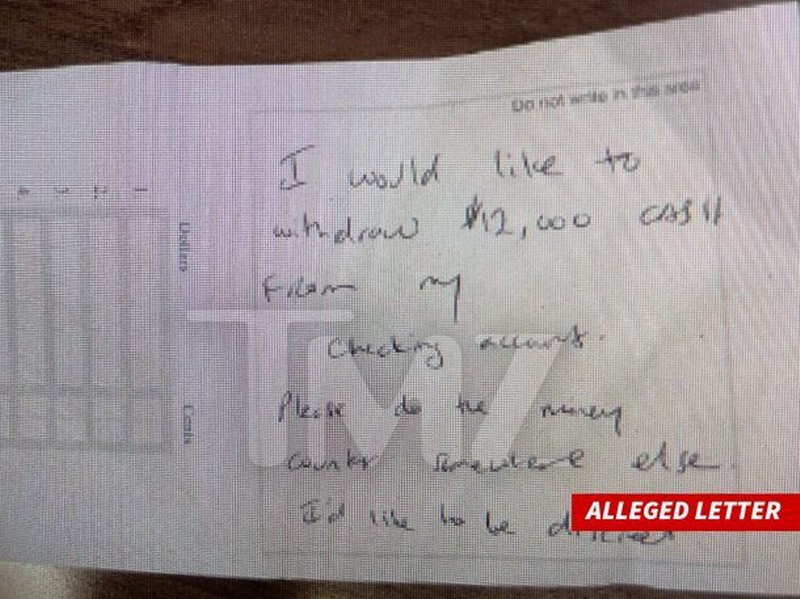 Do not write in this area
I would like to
withdraw $12,000 CASH
From my
Checking account.
Please do the money
counter somewhere else.
I'd like to be
Dollars
Cents
1
2
3
4
TMZ
ALLEGED LETTER